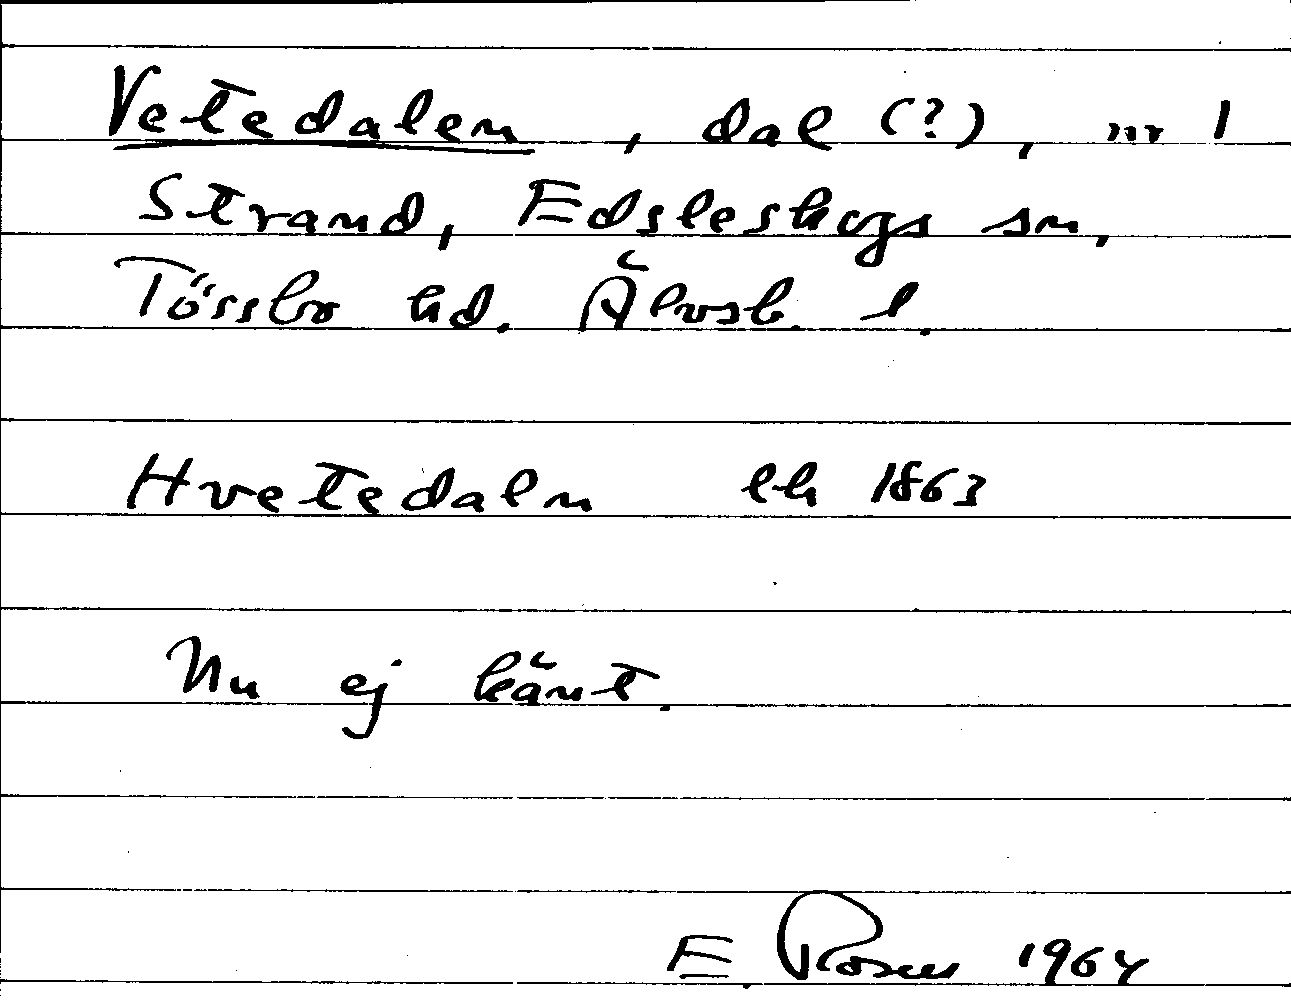 Vetedalen, dal (?), nr 1
Strand, Edsleskogs sn,
Tössbo hd. Älvsb. l.
Hvetedaln lh 1863
Nu ej känt.
E. Rosen 1964